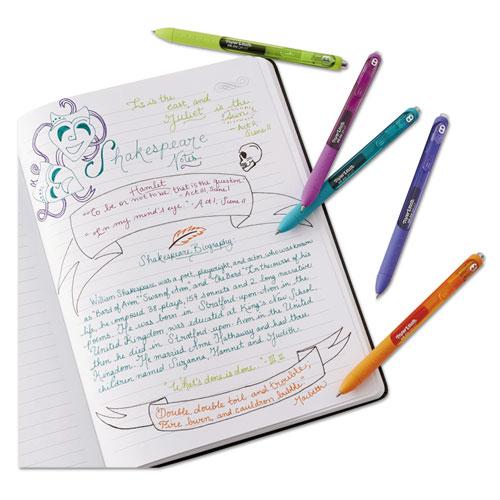 It is the east, and
Juliet is the
Sun.
- Act 2,
Scene II
Shakespeare
Notes
Hamlet
"To be or not to be that is the question"
- Act III, Scene I
"In my mind's eye." - Act 1, Scene II
Shakespeare Biography
William Shakespeare was a poet, playwright, and actor, who was known
as "Bard of Avon," "Swan of Avon," and "The Bard". In the course of his
life, he composed 38 plays, 154 sonnets and 2 long narrative
poems. He was born in Stratford-upon-Avon in the
United Kingdom, was educated at King's New School,
then he died in Stratford-upon-Avon in the United
Kingdom. He married Anne Hathaway and had three
children named Suzanna, Hamnet and Judith.
"What's done is done."
Double, double toil and trouble,
Fire burn, and cauldron bubble"
Macbeth
Paper Mate
Paper Mate
Paper Mate
Paper Mate
Paper Mate